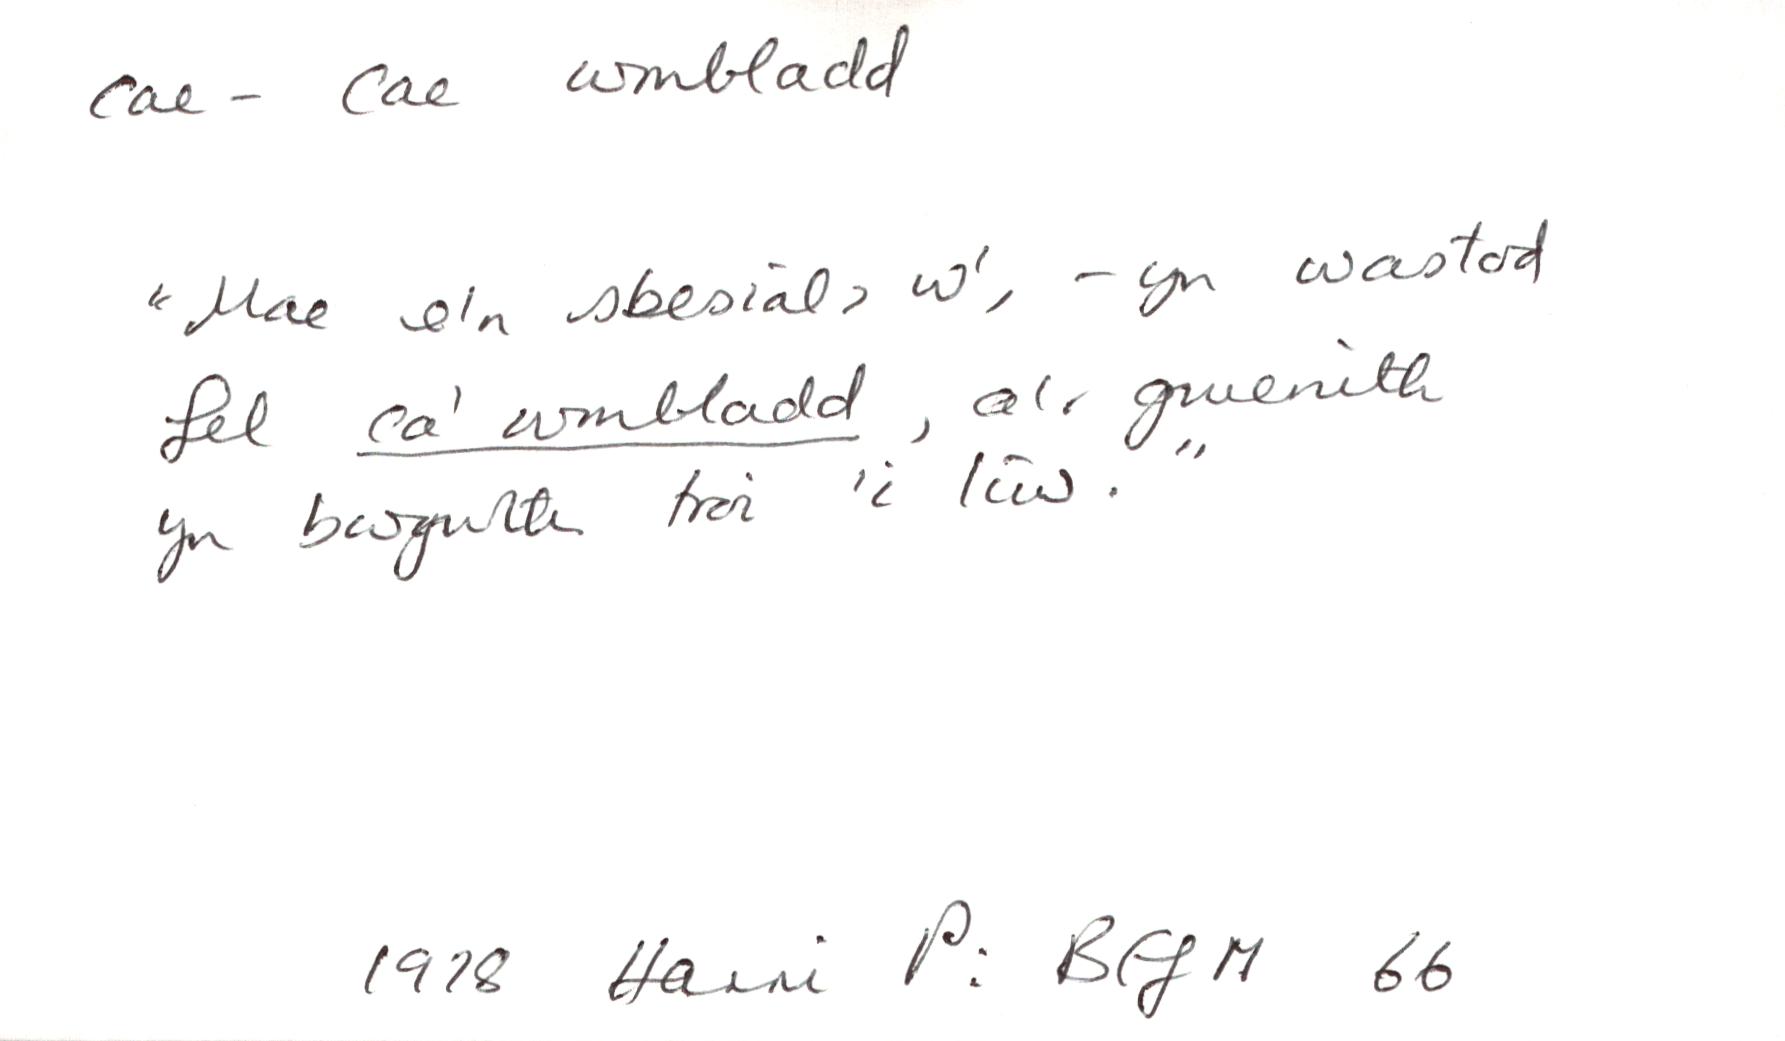 cae - Cae wmbladd
"Mae e'n sbesial, w', - yn wastod
fel ca' wmbladd, a'r gwenith
yn bwgwlth troi 'i liw."
1978 Harri P: BGM 66